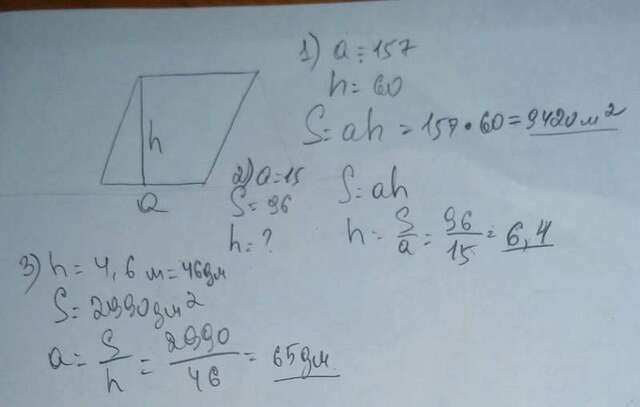 1) a = 157
h = 60
S = ah = 157 • 60 = 9420 м²
h
a
2) a = 15
S = 96
h = ?
S = ah
h = S/a = 96/15 = 6,4
3) h = 4,6 м = 46 дм
S = 2990 дм²
a = S/h = 2990/46 = 65 дм